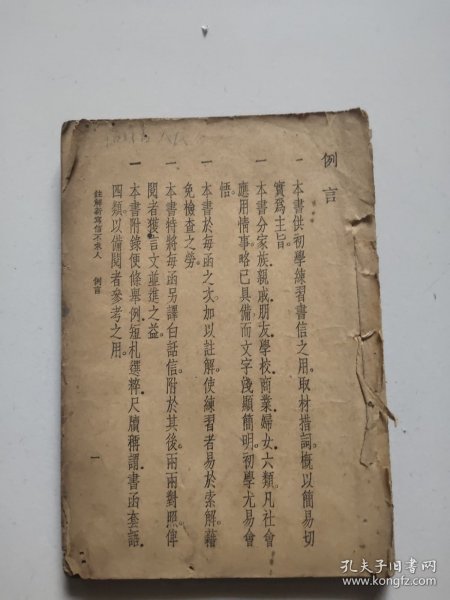 例言
一 本書供初學練習書信之用。取材措詞。概以簡易切
實爲主旨。
一 本書分家族。親戚。朋友。學校。商業。婦女。六類。凡社會
應用情事。略已具備。而文字淺顯簡明。初學尤易會
悟。
一 本書於每函之次。加以註解。使練習者易於索解。藉
免檢查之勞。
一 本書特將每函另譯白話信。附於其後。兩兩對照。俾
閱者獲言文並進之益。
一 本書附錄便條舉例。短札選粹。尺牘稱謂。書函套語。
四類。以備閱者參考之用。
註解新寫信不求人 例言
一
孔夫子旧书网
www.kongfz.com